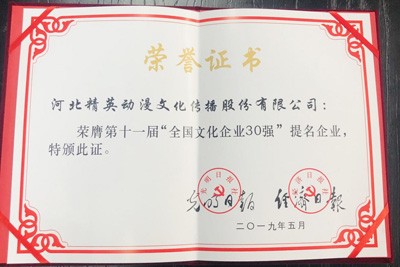 荣誉证书
河北精英动漫文化传播股份有限公司：
荣膺第十一届“全国文化企业30强”提名企业，
特颁此证。
光明日报社 经济日报社
光明日报 经济日报
二〇一九年五月